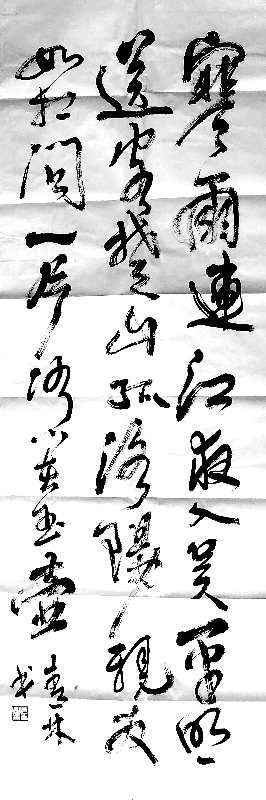 寒雨連江夜入吳平明
送客楚山孤洛陽親友
如相問一片冰心在玉壺
林
书